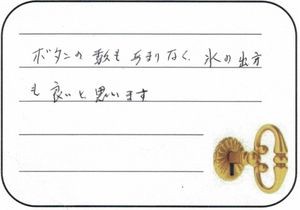 ボタンの数もあまりなく、水の出方
も良いと思います